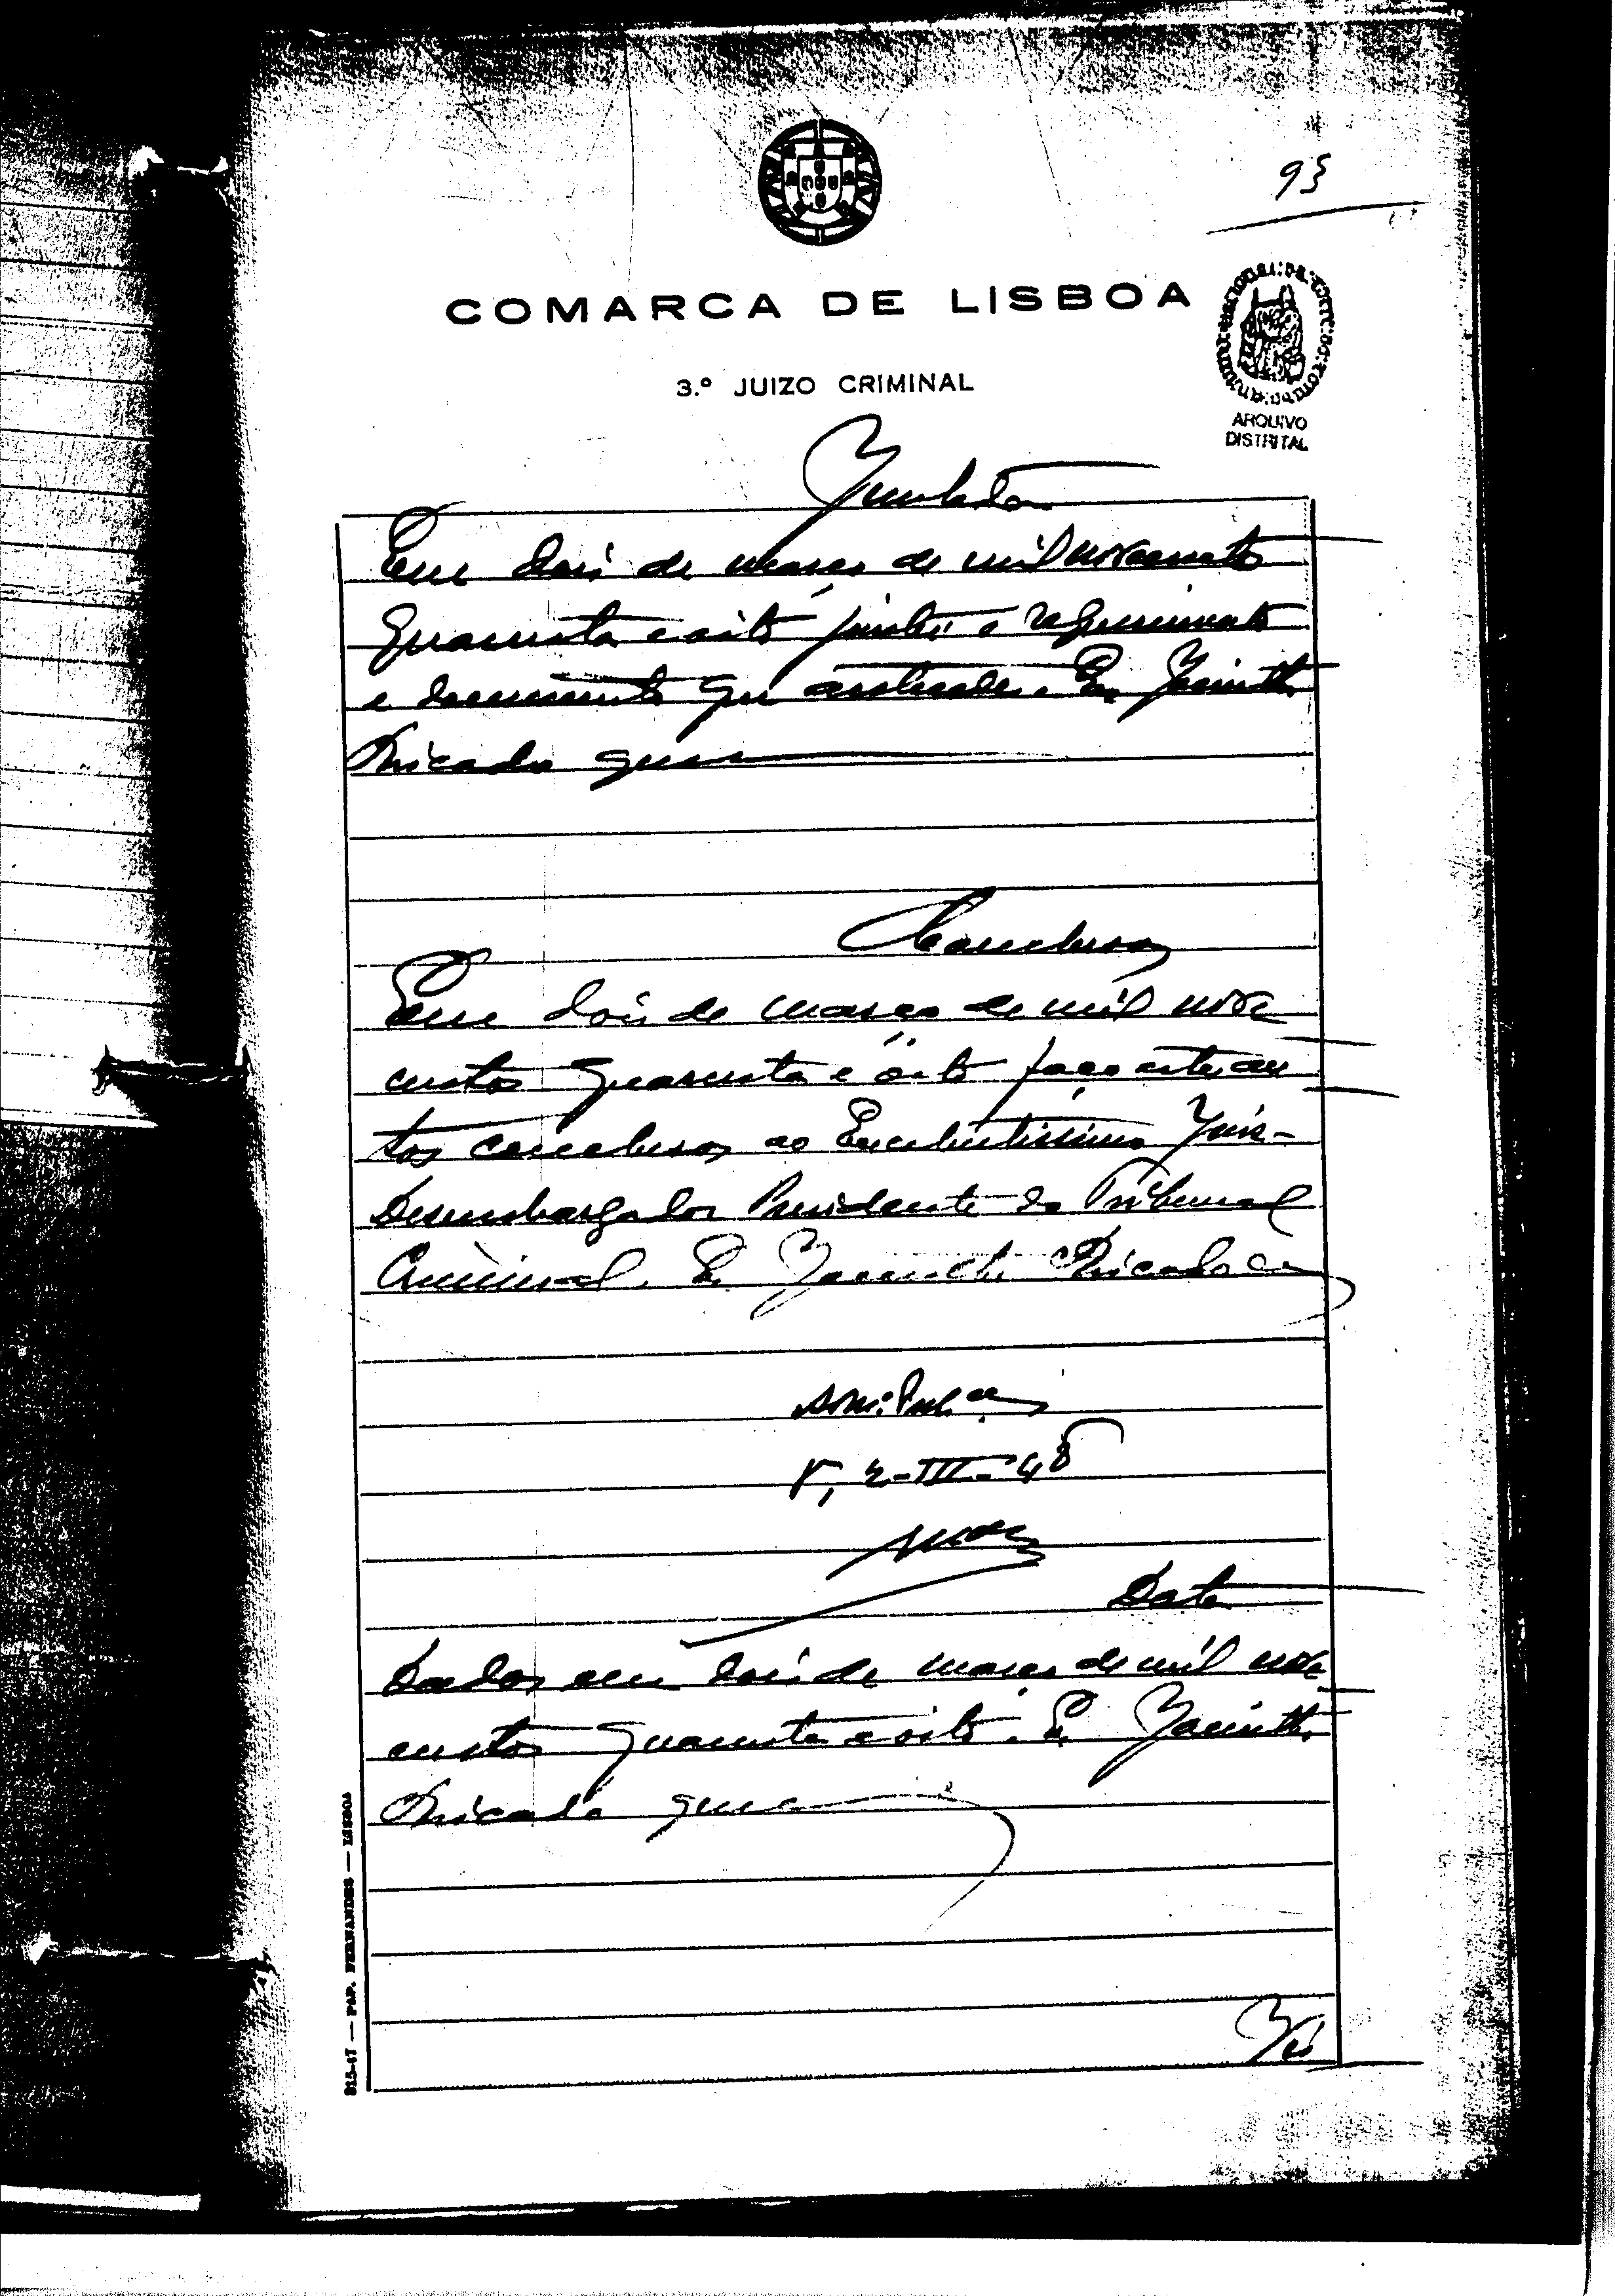 93
COMARCA DE LISBOA
3.º JUIZO CRIMINAL
ARQUIVO
DISTRITAL
Juntada
Em dois de março de mil novecentos
quarenta e oito juntei o requerimento
e documento que antecede. E. Jacintho
que
Conclusão
Em dois de março de mil nove
centos quarenta e oito faço estes au
tos conclusos ao Excelentissimo Juis-
Desembargador Presidente do Tribunal
Criminal. E. Jacintho
2-III-48
Data
Dados em dois de março de mil nove
centos quarenta e oito. E. Jacintho
que
915-47 — PAP. FERNANDES — LISBOA